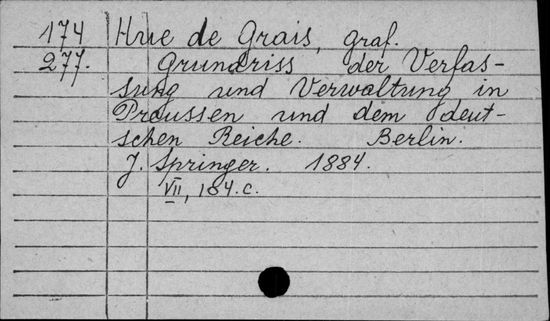 174 Hue de Grais, graf.
277. Grundriss der Verfas-
sung und Verwaltung in
Preussen und dem deut-
schen Reiche. Berlin.
J. Springer. 1884.
VII, 184.c.